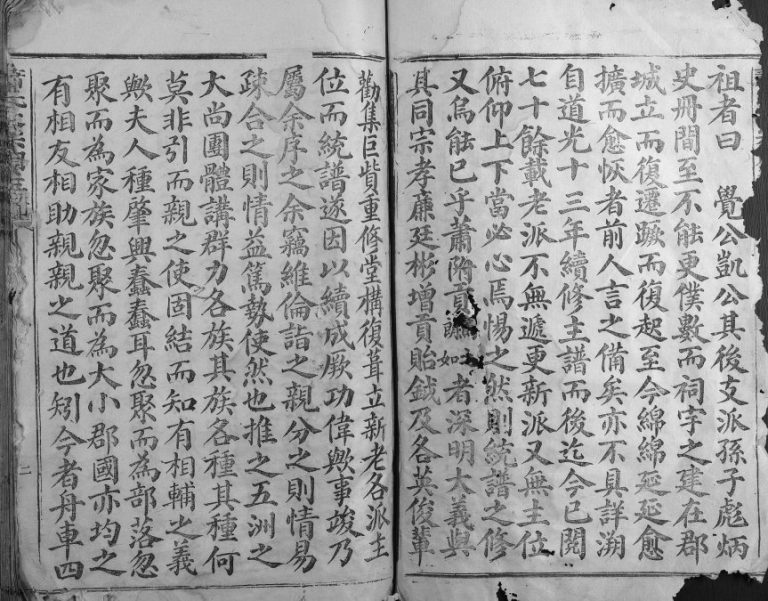 祖者曰　覺公凱公其後支派孫子彪炳
史冊間至不能更僕數而祠宇之建在郡
城立而復遷蹶而復起至今綿綿延延愈
擴而愈恢者前人言之備矣亦不具詳溯
自道光十三年續修主譜而後迄今已閱
七十餘載老派不無遞更新派又無主位
俯仰上下當必心焉惕之然則統譜之修
又烏能已乎蕭附貢如者深明大義與
其同宗孝廉廷彬增貢貽鉞及各英俊輩
勸集巨貲重修堂構復葺立新老各派主
位而統譜遂因以續成厥功偉歟事竣乃
屬余序之余竊維倫詣之親分之則情易
疎合之則情益篤勢使然也推之五洲之
大尚團體講群力各族其族各種其種何
莫非引而親之使固結而知有相輔之義
歟夫人種肇興蠢蠢耳忽聚而為部落忽
聚而為家族忽聚而為大小郡國亦均之
有相友相助親親之道也矧今者舟車四
二